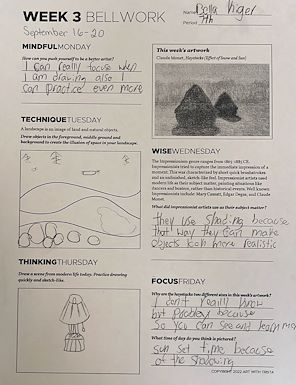 WEEK 3 BELLWORK
Name Bella Kiger
Period 7th
September 16-20
MINDFULMONDAY
How can you push yourself to be a better artist?
I can really focus when
I am drawing also I
can practice even more
This week's artwork
Claude Monet, Haystacks (Effect of Snow and Sun)
TECHNIQUETUESDAY
A landscape is an image of land and natural objects.
Draw objects in the foreground, middle ground and
background to create the illusion of space in your landscape.
WISEWEDNESDAY
The Impressionism genre ranges from 1865-1885 CE.
Impressionists tried to capture the immediate impression of a
moment. This was characterized by short quick brushstrokes
and an unfinished, sketch-like feel. Impressionist artists used
modern life as their subject matter, painting situations like
dances and theaters, rather than historical events. Well known
Impressionists include: Mary Cassatt, Edgar Degas, and Claude
Monet.
What did impressionist artists use as their subject matter?
they use shading because
that way they can make
objects look more realistic
THINKINGTHURSDAY
Draw a scene from modern life today. Practice drawing
quickly and sketch-like.
FOCUSFRIDAY
Why are the haystacks two different sizes in this week's artwork?
I don't really know
but probably because
so you can see and learn mo
What time of day do you think is pictured?
sun set time because
of the shadowing
COPYRIGHT 2022 ART WITH TRISTA